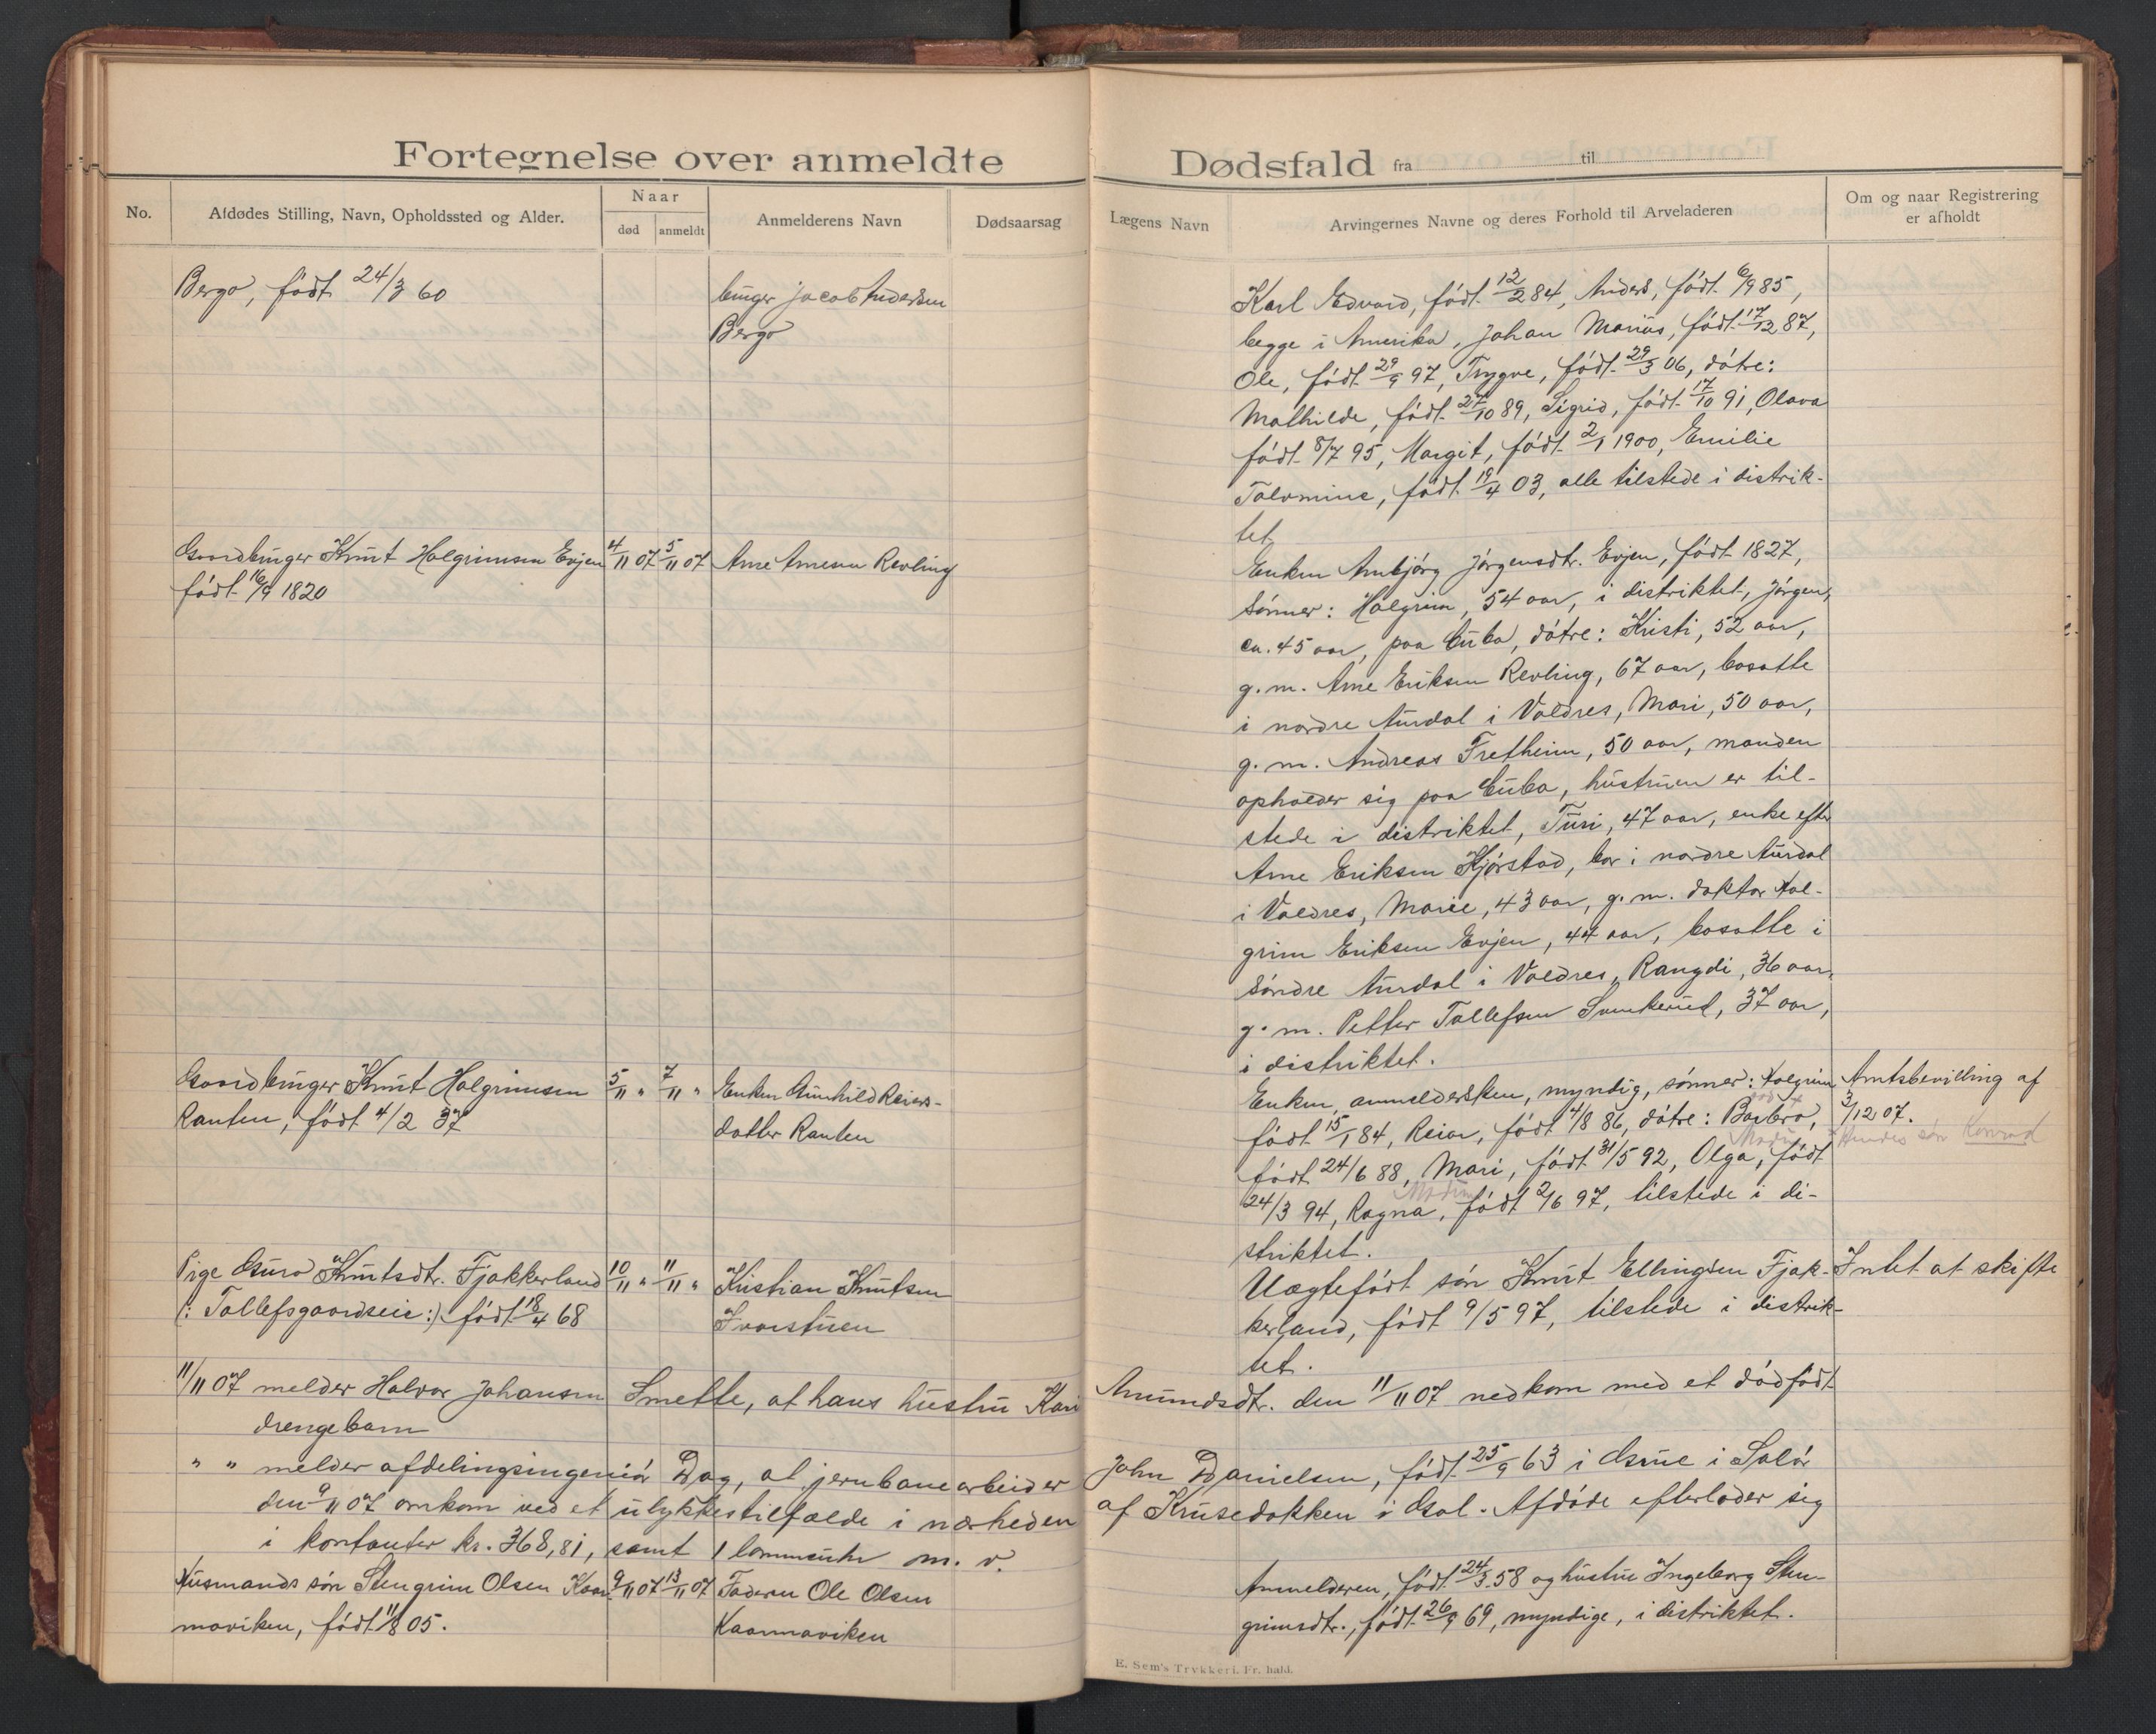 Fortegnelse over anmeldte
Dødsfald fra til
No.
Afdødes Stilling, Navn, Opholdssted og Alder.
Naar
død
anmeldt
Anmelderens Navn
Dødsaarsag
Lægens Navn
Arvingernes Navne og deres Forhold til Arveladeren
Om og naar Registrering
er afholdt
Bergo, født 24/3 60
bruger Jacob Andersen
Bergo
Karl Edvard, født 12/2 84, Anders, født 6/9 85,
begge i Amerika, Johan Marius, født 17/12 87,
Ole, født 29/9 97, Trygve, født 29/3 06, døtre:
Mathilde, født 27/10 89, Sigrid, født 17/10 91, Olava
født 8/7 95, Margit, født 2/1 1900, Emilie
Talomine, født 19/4 03, alle tilstede i distrik-
tet
Gaardbruger Knut Halgrimsen Evjen
født 16/9 1820
4/11 07
5/11 07
Arne Arnesen Revling
Enken Ambjørg Jørgensdtr. Evjen, født 1827,
sønner: Halgrim, 54 aar, i distriktet, Jørgen,
ca. 45 aar, paa Cuba, døtre: Kristi, 52 aar,
g. m. Arne Eriksen Revling, 67 aar, bosatte
i nordre Aurdal i Valdres, Mari, 50 aar,
g. m. Andreas Fretheim, 50 aar, manden
opholder sig paa Cuba, hustruen er til-
stede i distriktet, Turi, 47 aar, enke efter
Arne Eriksen Kjørstad, bor i nordre Aurdal
i Valdres, Marie, 43 aar, g. m. doktor Hal-
grim Eriksen Evjen, 44 aar, bosatte i
søndre Aurdal i Valdres, Rangdi, 36 aar,
g. m. Petter Tollefsen Svenkerud, 37 aar,
i distriktet.
Gaardbruger Knut Halgrimsen
Ranten, født 4/2 37
5/11 "
7/11 "
Enken Gunhild Reiers-
datter Ranten
Enken, anmeldersken, myndig, sønner: Halgrim
født 15/1 84, Reiar, født 4/8 86, døtre: Barbro,
født 24/6 88, Mari, født 31/5 92, Olga, født
24/3 94, Ragna, født 2/6 97, tilstede i di-
striktet.
Amtsbevilling af
3/12 07.
Hendes søn Konrad
Pige Guro Knutsdtr. Fjakkerland
(: Tollefsgaardseie :) født 18/4 68
10/11 "
11/11 "
Kristian Knutsen
Ivarstuen
Uægtefødt søn Knut Ellingsen Fjak-
kerland, født 9/5 97, tilstede i distrik-
tet.
Intet at skifte
11/11 07 melder Halvor Johansen Smette, at hans hustru Kari Amundsdtr. den 11/11 07 nedkom med et dødfødt
drengebarn
" " melder afdelingsingeniør Dag, at jernbanearbeider John Danielsen, født 25/9 63 i Grue i Solør
den 9/11 07 omkom ved et ulykkestilfælde i nærheden af Krusedokken i Gol. Afdøde efterlader sig
i kontanter kr. 368,81, samt 1 lommeuhr m. v.
Husmands søn Stengrim Olsen Kaar-
maviken, født 11/8 05.
9/11 07
13/11 07
Faderen Ole Olsen
Kaarmaviken
Anmelderen, født 24/3 58 og hustru Ingeborg Sten-
grimsdtr., født 26/9 69, myndige, i distriktet.
E. Sem's Trykkeri. Fr. hald.